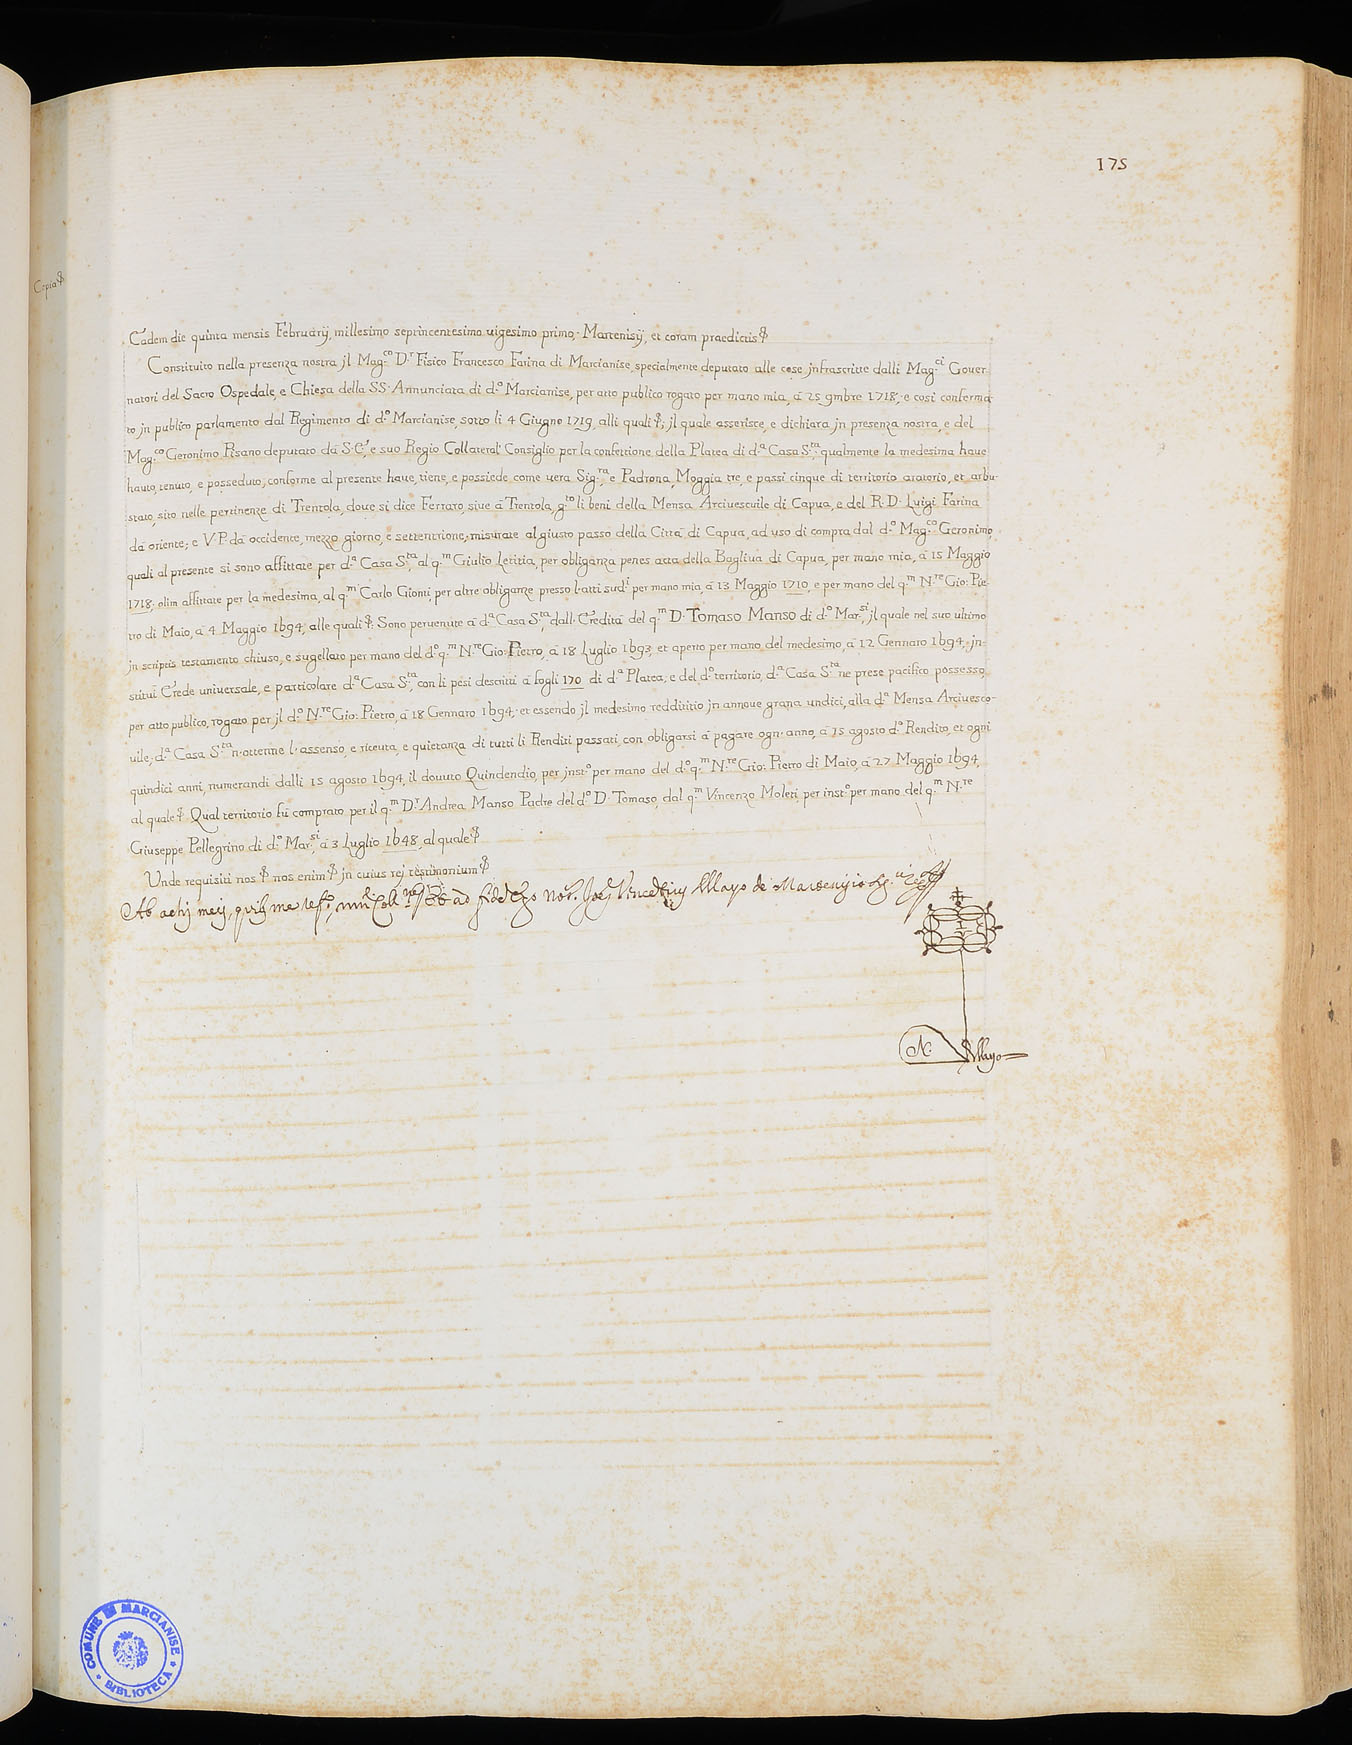 175
Copia
Eadem die quinta mensis Februarij, millesimo septincentesimo uigesimo primo, Martenisij, et coram praedictis &
Constituito nella presenza nostra jl Mag.co D.r Fisico Francesco Farina di Marcianise, specialmente deputato alle cose jnfrascritte dalli Mag.ci Gouer
natori del Sacro Ospedale, e Chiesa della SS. Annunciata di d.o Marcianise, per atto publico rogato per mano mia, à 25 9mbre 1718, e così conferma
to jn publico parlamento dal Regimento di d.o Marcianise, sotto li 4 Giugno 1719, alli quali &; jl quale asserisce, e dichiara jn presenza nostra, e del
Mag.co Geronimo Pisano deputato da S. E., e suo Regio Collateral Consiglio per la confettione della Platea di d.a Casa S.ta, qualmente la medesima haue
hauto, tenuto, e posseduto, conforme al presente haue, tiene, e possiede come uera Sig.ra, e Padrona, Moggia tre, e passi cinque di territorio aratorio, et arbu
stato, sito nelle pertinenze di Trentola, doue si dice Ferraro, siue à Trentola, g.to li beni della Mensa Arciuescouile di Capua, e del R. D. Luigi Farina
da oriente; e V. P. da occidente, mezzo giorno, e settentrione, misurate al giusto passo della Città di Capua, ad uso di compra dal d.o Mag.co Geronimo
quali al presente si sono affittate per d.a Casa S.ta, al q.m Giulio Letitia, per obliganza penes acta della Bagliua di Capua, per mano mia, à 15 Maggio
1718; olim affittate per la medesima, al q.m Carlo Gionti, per altre obliganze presso l'atti sud.i per mano mia, à 13 Maggio 1710, e per mano del q.m N.re Gio: Pie
tro di Maio, à 4 Maggio 1694, alle quali &: Sono peruenute à d.a Casa S.ta, dall'Eredità del q.m D. Tomaso Manso di d.o Mar.si, jl quale nel suo ultimo
jn scriptis testamento chiuso, e sugellato per mano del d.o q.m N.re Gio: Pietro, à 18 Luglio 1693, et aperto per mano del medesimo, à 12 Gennaro 1694, jn-
stituì Erede uniuersale, e particolare d.a Casa S.ta, con li pesi descritti à fogli 170 di d.a Platea; e del d.o territorio, d.a Casa S.ta ne prese pacifico possesso,
per atto publico, rogato per jl d.o N.re Gio: Pietro, à 18 Gennaro 1694; et essendo jl medesimo reddititio jn annoue grana undici, alla d.a Mensa Arciuesco-
uile; d.a Casa S.ta n'ottenne l'assenso, e riceuta, e quietanza di tutti li Renditi passati, con obligarsi à pagare ogn'anno, à 15 agosto d.o Rendito, et ogni
quindici anni, numerandi dalli 15 agosto 1694, il douuto Quindendio, per jnst.o per mano del d.o q.m N.re Gio: Pietro di Maio, à 27 Maggio 1694,
al quale &. Qual territorio fù comprato per il q.m D.r Andrea Manso Padre del d.o D. Tomaso, dal q.m Vincenzo Moleti, per inst.o per mano del q.m N.re
Giuseppe Pellegrino di d.o Mar.si, à 3 Luglio 1648, al quale &
Unde requisiti nos & nos enim & jn cuius rej testimonium &
Ab actis meis, quibus me ad fidem Ego Not. Vincentius Mayo de Martenisio
N. Mayo
COMUNE DI MARCIANISE
BIBLIOTECA